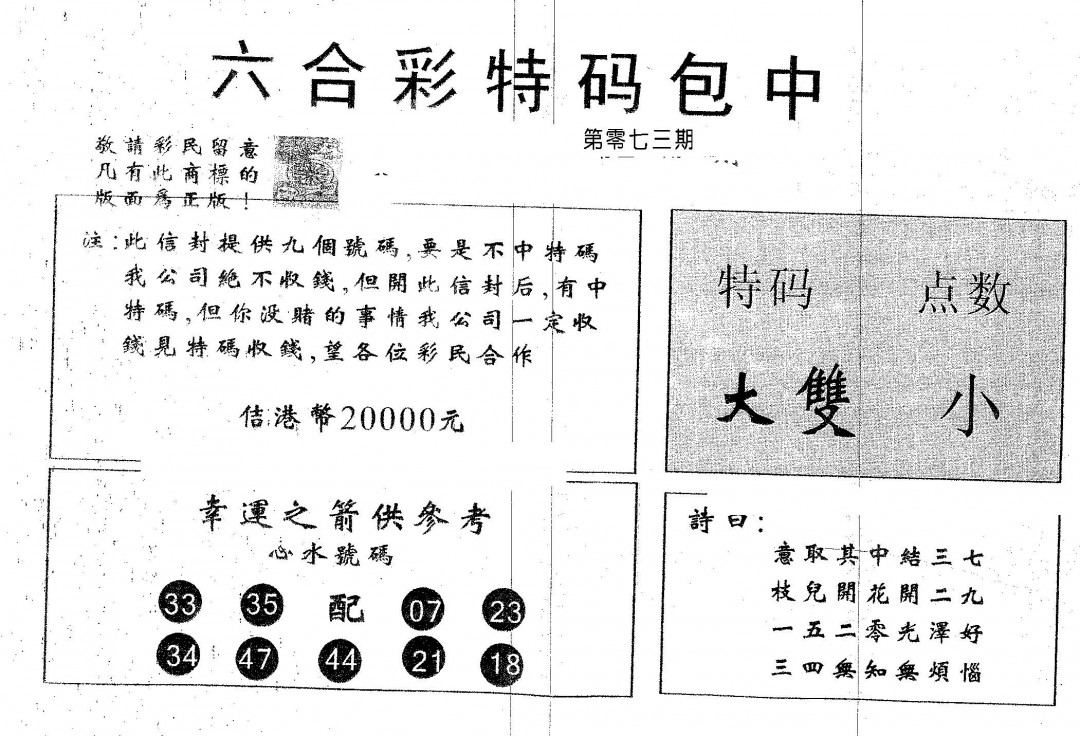 六合彩特码包中
第零七三期
敬請彩民留意
凡有此商標的
版面爲正版！
注：此信封提供九個號碼，要是不中特碼
我公司絶不收錢，但開此信封后，有中
特碼，但你没賭的事情我公司一定收
錢見特碼收錢，望各位彩民合作
佶港幣20000元
特码 点数
大雙 小
幸運之箭供參考
心水號碼
33 35 配 07 23
34 47 44 21 18
詩曰：
意取其中結三七
枝兒開花開二九
一五二零光澤好
三四無知無煩惱